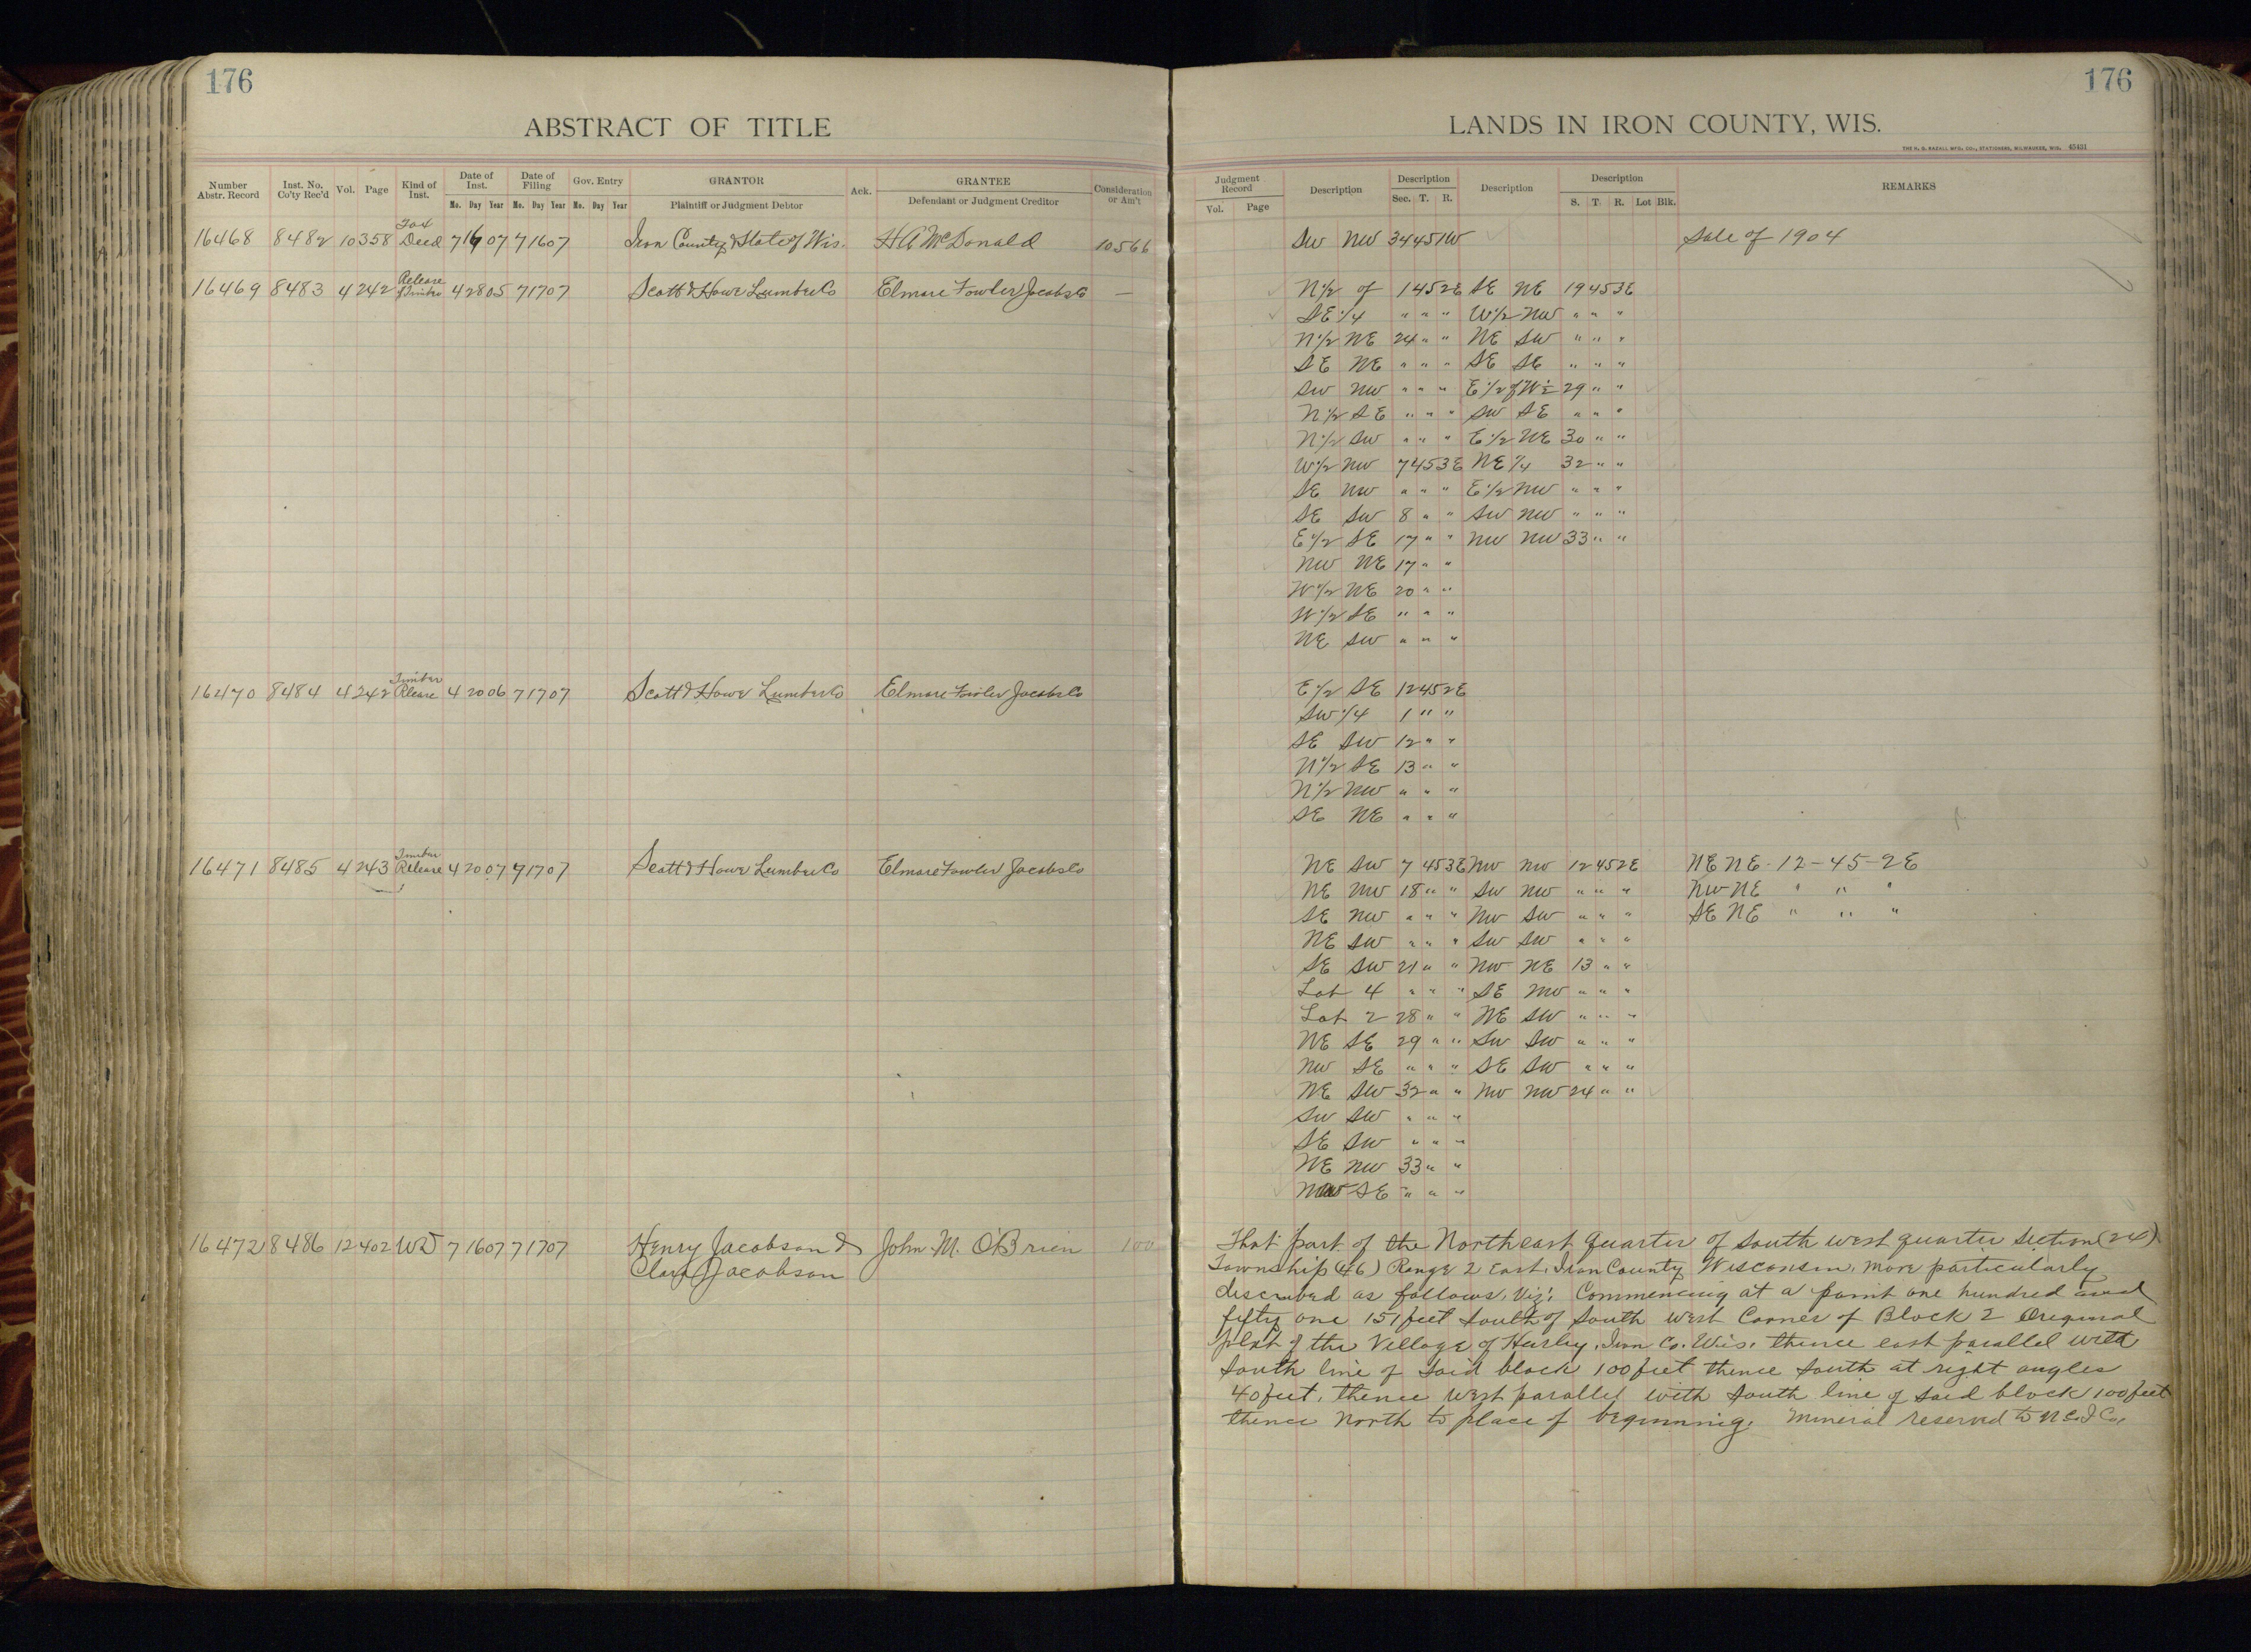 176
ABSTRACT OF TITLE
Number Abstr. Record Inst. No. Co'ty Rec'd Vol. Page Kind of Inst. Date of Inst. Date of Filing Gov. Entry GRANTOR Ack. GRANTEE Consideration or Am't
Mo. Day Year Mo. Day Year Mo. Day Year Plaintiff or Judgment Debtor Defendant or Judgment Creditor
16468 8482 10 358 Tax Deed 7 16 07 7 16 07 Iron County & State of Wis. H A McDonald 105 66
16469 8483 4 242 Release of Timber 4 28 05 7 17 07 Scott & Howe Lumber Co Elmore Fowler Jacobs Co —
16470 8484 4 242 Timber Release 4 20 06 7 17 07 Scott & Howe Lumber Co Elmore Fowler Jacobs Co
16471 8485 4 243 Timber Release 4 20 07 7 17 07 Scott & Howe Lumber Co Elmore Fowler Jacobs Co
16472 8486 12 402 WD 7 16 07 7 17 07 Henry Jacobson & John M. O'Brien 100
Clara Jacobson
176
LANDS IN IRON COUNTY, WIS.
THE H. G. RAZALL MFG. CO., STATIONERS, MILWAUKEE, WIS. 45431
Judgment Record Description Description Description Description REMARKS
Vol. Page Sec. T. R. S. T. R. Lot Blk.
SW NW 34 45 1W Sale of 1904
N 1/2 of 1 45 2E SE NE 19 45 3E
SE 1/4 " " " W 1/2 NW " " "
N 1/2 NE 24 " " NE SW " " "
SE NE " " " SE SE " " "
SW NW " " " E 1/2 of W 1/2 29 " "
N 1/2 SE " " " SW SE " " "
N 1/2 SW " " " E 1/2 NE 30 " "
W 1/2 NW 7 45 3E NE 1/4 32 " "
SE NW " " " E 1/2 NW " " "
SE SW 8 " " SW NW " " "
E 1/2 SE 17 " " NW NW 33 " "
NW NE 17 " "
W 1/2 NE 20 " "
W 1/2 SE " " "
NE SW " " "
E 1/2 SE 12 45 2E
SW 1/4 1 " "
SE SW 12 " "
N 1/2 SE 13 " "
N 1/2 NW " " "
SE NE " " "
NE SW 7 45 3E NW NW 12 45 2E NE NE - 12 - 45 - 2E
NE NW 18 " " SW NW " " " NW NE " " "
SE NW " " " NW SW " " " SE NE " " "
NE SW " " " SW SW " " "
SE SW 21 " " NW NE 13 " "
Lot 4 " " " SE NW " " "
Lot 2 28 " " NE SW " " "
NE SE 29 " " SW SW " " "
NW SE " " " SE SW " " "
NE SW 32 " " NW NW 24 " "
SW SW " " "
SE SW " " "
NE NW 33 " "
NW SE " " "
That part of the Northeast quarter of South west quarter Section (24)
Township (46) Range 2 East, Iron County Wisconsin, more particularly
discribed as follows, Viz: Commencing at a point one hundred and
fifty one 151 feet South of South west Corner of Block 2 Original
plat of the Village of Hurley, Iron Co. Wis. thence east parallel with
South line of said block 100 feet thence South at right angles
40 feet, thence West parallel with South line of said block 100 feet
thence North to place of beginning. Mineral reserved to N C I Co.